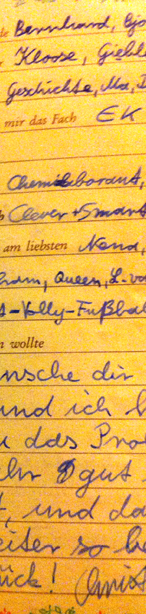 de Bernhard,
Kloose, Giebl
Geschichte, Ma,
mir das Fach EK
Chemielaborant,
Clever + Smart
am liebsten Nena,
Queen, L. v
Volly-Fußbal
n wollte
nsche dir
und ich
das Pro
gut
und da
eiter so
ück!